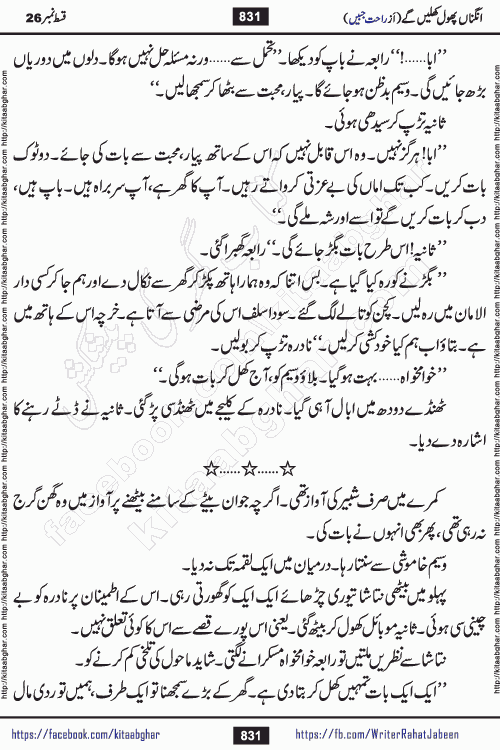 انگناں پھول کھلیں گے (از راحت جبیں) 831 قسط نمبر 26
’’ابا......!‘‘ رابعہ نے باپ کو دیکھا۔ ’’تحمل سے...... ورنہ مسئلہ حل نہیں ہو گا۔ دلوں میں دوریاں
بڑھ جائیں گی۔ وسیم بدظن ہو جائے گا۔ پیار، محبت سے بٹھا کر سمجھا لیں۔‘‘
ثانیہ تڑپ کر سیدھی ہوئی۔
’’ابا! ہرگز نہیں۔ وہ اس قابل نہیں کہ اس کے ساتھ پیار، محبت سے بات کی جائے۔ دوٹوک
بات کریں۔ کب تک اماں کی بے عزتی کرواتے رہیں۔ آپ کا گھر ہے، آپ سربراہ ہیں۔ باپ ہیں،
دب کر بات کریں گے تو اسے اور شہ ملے گی۔‘‘
’’ثانیہ! اس طرح بات بگڑ جائے گی۔‘‘ رابعہ گھبرا گئی۔
’’بگڑنے کو رہ کیا گیا ہے۔ بس اتنا کہ وہ ہمارا ہاتھ پکڑ کر گھر سے نکال دے اور ہم جا کر کسی دار
الامان میں رہ لیں۔ کچن کو تالے لگ گئے۔ سودا سلف اس کی مرضی سے آتا ہے۔ خرچہ اس کے ہاتھ میں
ہے۔ بتاؤ اب ہم کیا خودکشی کر لیں۔‘‘ نادرہ تڑپ کر بولیں۔
’’خوامخواہ...... بہت ہو گیا۔ بلاؤ وسیم کو، آج کھل کر بات ہو گی۔‘‘
ٹھنڈے دودھ میں ابال آ ہی گیا۔ نادرہ کے کلیجے میں ٹھنڈ سی پڑ گئی۔ ثانیہ نے ڈٹے رہنے کا
اشارہ دے دیا۔
☆......☆......☆
کمرے میں صرف شبیر کی آواز تھی۔ اگرچہ جوان بیٹے کے سامنے بیٹھنے پر آواز میں وہ گھن گرج
نہ رہی تھی، پھر بھی انہوں نے بات کی۔
وسیم خاموشی سے سنتا رہا۔ درمیان میں ایک لقمہ تک نہ دیا۔
پہلو میں بیٹھی نتاشا تیوری چڑھائے ایک ایک کو گھورتی رہی۔ اس کے اطمینان پر نادرہ کو بے
چینی سی ہوئی۔ ثانیہ موبائل کھول کر بیٹھ گئی۔ یعنی اس پورے قصے سے اس کا کوئی تعلق نہیں۔
نتاشا سے نظریں ملتیں تو رابعہ خوامخواہ مسکرانے لگتی۔ شاید ماحول کی تلخی کم کرنے کو۔
’’ایک ایک بات تمہیں کھل کر بتا دی ہے۔ گھر کے بڑے سمجھنا تو ایک طرف، ہمیں تو ردی مال
https://facebook.com/kitaabghar 831 https://fb.com/WriterRahatJabeen
http://kitaabghar.com http://kitaabghar.com http://kitaabghar.com http://kitaabghar.com